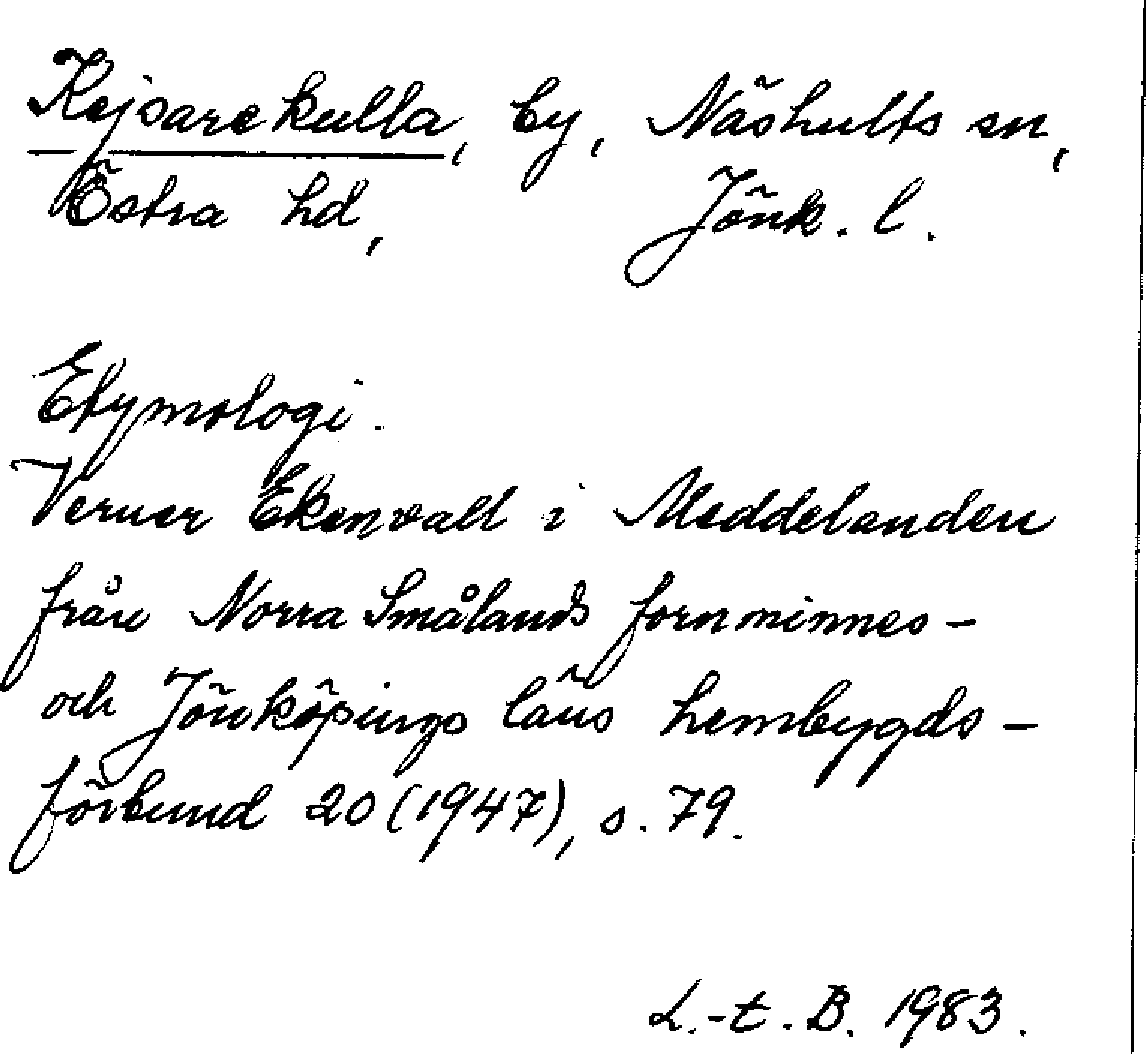 Kejsarekulla, by, Näshults sn,
Östra hd, Jönk. l.
Etymologi.
Verner Ekenvall i Meddelanden
från Norra Smålands fornminnes-
och Jönköpings läns hembygds-
förbund 20 (1947), s. 79.
L.-t. B. 1983.